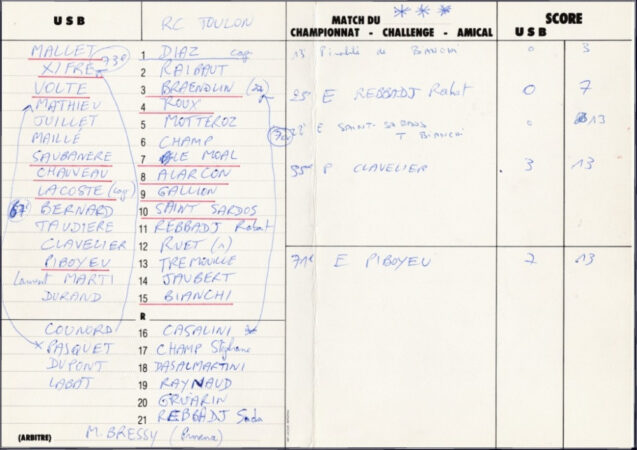 U S B
RC TOULON
MATCH DU ***
CHAMPIONNAT - CHALLENGE - AMICAL
SCORE
U S B
MALLET 1 DIAZ cap
XIFRE 73e 2 RAIBAUT
VOLTE 3 BRAENDLIN
MATHIEU 4 ROUX
JUILLET 5 MOTTEROZ
MAILLÉ 6 CHAMP
SAUBANERE 7 LE MOAL
CHAUVEAU 8 ALARCON
LACOSTE (cap) 9 GALLION
67' BERNARD 10 SAINT SARDOS
TAUDIERE 11 REBBADJ
CLAVELIER 12 RUET
PIBOYEU 13 TREMOUILLE
Laurent MARTI 14 JAUBERT
DURAND 15 BIANCHI
R
COUNORD 16 CASALINI *
x PASQUET 17 CHAMP Stéphane
DUPONT 18 DASALMARTINI
LABAT 19 RAYNAUD
20 GRUARIN
21 REBBADJ
(ARBITRE) M. BRESSY
13' Pénalité de BIANCHI 0 3
25' E REBBADJ 0 7
E SAINT-SARDOS 0 13
T BIANCHI
35e P CLAVELIER 3 13
71e E PIBOYEU 7 13